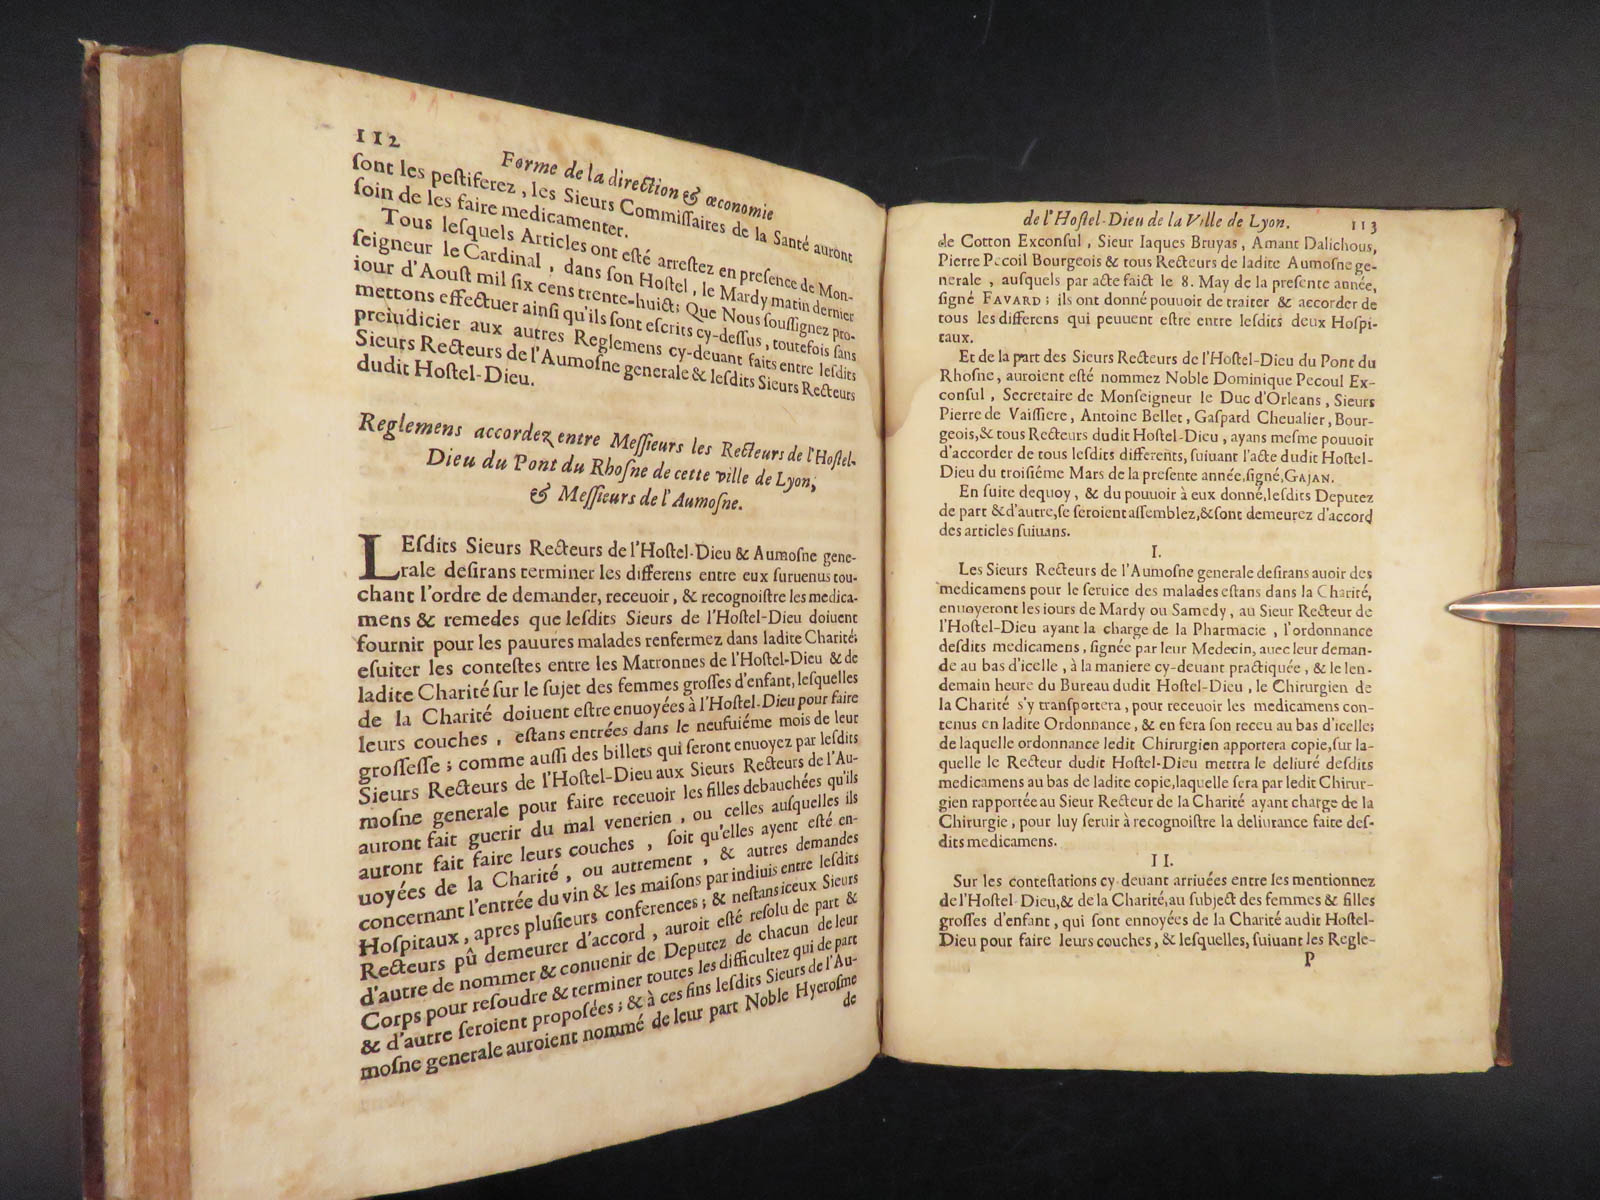 112
Forme de la direction & œconomie
ſont les peſtiferez, les Sieurs Commiſſaires de la Santé auront
ſoin de les faire medicamenter.
Tous leſquels Articles ont eſté arreſtez en preſence de Mon-
ſeigneur le Cardinal, dans ſon Hoſtel, le Mardy matin dernier
iour d'Aouſt mil ſix cens trente-huict; Que Nous ſouſſignez pro-
mettons effectuer ainſi qu'ils ſont eſcrits cy-deſſus, toutefois ſans
preiudicier aux autres Reglemens cy-deuant faits entre leſdits
Sieurs Recteurs de l'Aumoſne generale & leſdits Sieurs Recteurs
dudit Hoſtel-Dieu.
Reglemens accordez entre Meſſieurs les Recteurs de l'Hoſtel-
Dieu du Pont du Rhoſne de cette ville de Lyon,
& Meſſieurs de l'Aumoſne.
LEſdits Sieurs Recteurs de l'Hoſtel-Dieu & Aumoſne gene-
rale deſirans terminer les differens entre eux ſuruenus tou-
chant l'ordre de demander, receuoir, & recognoiſtre les medica-
mens & remedes que leſdits Sieurs de l'Hoſtel-Dieu doiuent
fournir pour les pauures malades renfermez dans ladite Charité;
eſuiter les conteſtes entre les Matronnes de l'Hoſtel-Dieu & de
ladite Charité ſur le ſujet des femmes groſſes d'enfant, leſquelles
de la Charité doiuent eſtre enuoyées à l'Hoſtel-Dieu pour faire
leurs couches, eſtans entrées dans le neufuiéme mois de leur
groſſeſſe; comme auſſi des billets qui ſeront enuoyez par leſdits
Sieurs Recteurs de l'Hoſtel-Dieu aux Sieurs Recteurs de l'Au-
moſne generale pour faire receuoir les filles debauchées qu'ils
auront fait guerir du mal venerien, ou celles auſquelles ils
auront fait faire leurs couches, ſoit qu'elles ayent eſté en-
uoyées de la Charité, ou autrement, & autres demandes
concernant l'entrée du vin & les maiſons par indiuis entre leſdits
Hoſpitaux, apres pluſieurs conferences; & n'eſtans iceux Sieurs
Recteurs pû demeurer d'accord, auroit eſté reſolu de part &
d'autre de nommer & conuenir de Deputez de chacun de leur
Corps pour reſoudre & terminer toutes les difficultez qui de part
& d'autre ſeroient propoſées; & à ces fins leſdits Sieurs de l'Au-
moſne generale auroient nommé de leur part Noble Hyeroſme
de
de l'Hoſtel-Dieu de la Ville de Lyon.
113
de Cotton Exconſul, Sieur Iaques Bruyas, Amant Dalichous,
Pierre Pecoil Bourgeois & tous Recteurs de ladite Aumoſne ge-
nerale, auſquels par acte faict le 8. May de la preſente année,
ſigné FAVARD; ils ont donné pouuoir de traiter & accorder de
tous les differens qui peuuent eſtre entre leſdits deux Hoſpi-
taux.
Et de la part des Sieurs Recteurs de l'Hoſtel-Dieu du Pont du
Rhoſne, auroient eſté nommez Noble Dominique Pecoul Ex-
conſul, Secretaire de Monſeigneur le Duc d'Orleans, Sieurs
Pierre de Vaiſſiere, Antoine Bellet, Gaſpard Cheualier, Bour-
geois, & tous Recteurs dudit Hoſtel-Dieu, ayans meſme pouuoir
d'accorder de tous leſdits differents, ſuiuant l'acte dudit Hoſtel-
Dieu du troiſiéme Mars de la preſente année, ſigné, GAJAN.
En ſuite dequoy, & du pouuoir à eux donné, leſdits Deputez
de part & d'autre, ſe ſeroient aſſemblez, & ſont demeurez d'accord
des articles ſuiuans.
I.
Les Sieurs Recteurs de l'Aumoſne generale deſirans auoir des
medicamens pour le ſeruice des malades eſtans dans la Charité,
enuoyeront les iours de Mardy ou Samedy, au Sieur Recteur de
l'Hoſtel-Dieu ayant la charge de la Pharmacie, l'ordonnance
deſdits medicamens, ſignée par leur Medecin, auec leur deman-
de au bas d'icelle, à la maniere cy-deuant practiquée, & le len-
demain heure du Bureau dudit Hoſtel-Dieu, le Chirurgien de
la Charité s'y tranſportera, pour receuoir les medicamens con-
tenus en ladite Ordonnance, & en fera ſon receu au bas d'icelle;
de laquelle ordonnance ledit Chirurgien apportera copie, ſur la-
quelle le Recteur dudit Hoſtel-Dieu mettra le deliuré deſdits
medicamens au bas de ladite copie, laquelle ſera par ledit Chirur-
gien rapportée au Sieur Recteur de la Charité ayant charge de la
Chirurgie, pour luy ſeruir à recognoiſtre la deliurance faite deſ-
dits medicamens.
II.
Sur les conteſtations cy-deuant arriuées entre les mentionnez
de l'Hoſtel-Dieu, & de la Charité, au ſubject des femmes & filles
groſſes d'enfant, qui ſont ennoyées de la Charité audit Hoſtel-
Dieu pour faire leurs couches, & leſquelles, ſuiuant les Regle-
P